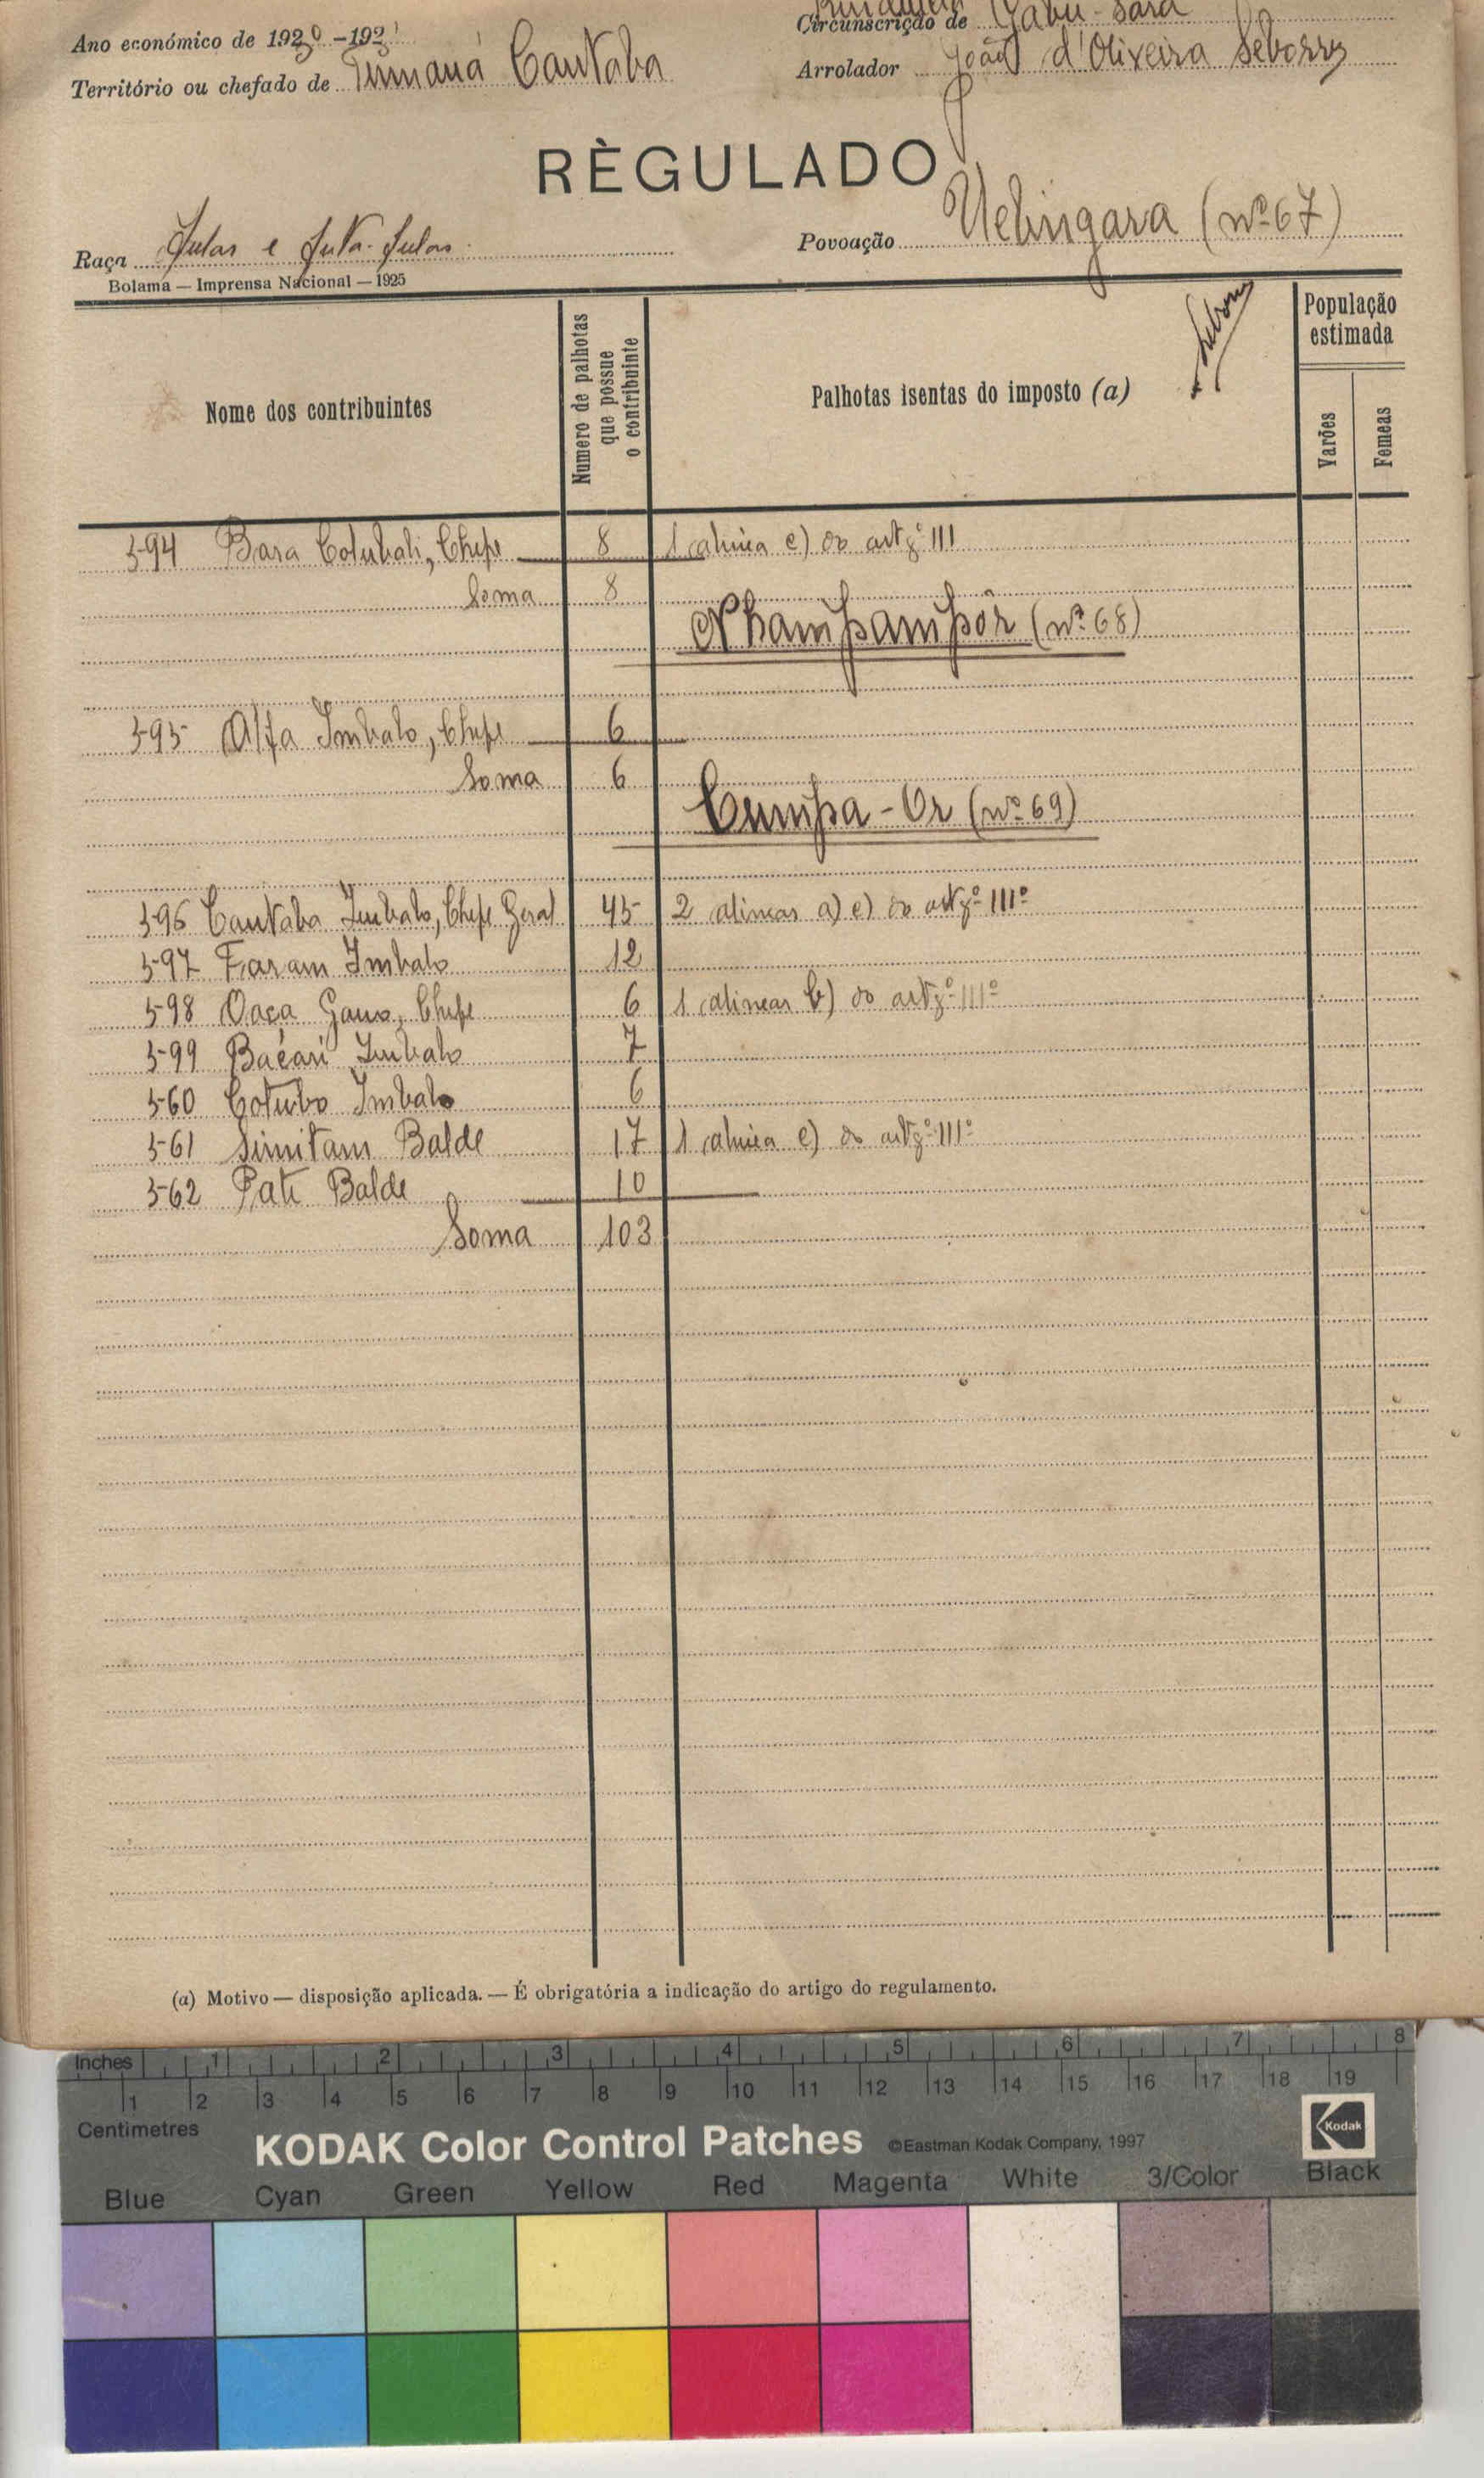 Circunscrição de Gabú-Sará
Ano económico de 1930-1931
Arrolador João d'Oliveira Seborro
Território ou chefado de Tumaná Cantaba
RÈGULADO
Raça Fulas e futa-fulas
Povoação Uelingara (nº 67)
Bolama — Imprensa Nacional — 1925
Nome dos contribuintes
Numero de palhotas que possue o contribuinte
Palhotas isentas do imposto (a)
População estimada
Varões
Femeas
594 Bara Colubali, Chefe 8 1 alinea e) do artgº III
Soma 8
Nhampampôr (nº 68)
595 Alfa Imbalo, Chefe 6
Soma 6
Cumpa-Or (nº 69)
596 Cantaba Imbalo, Chefe Geral 45 2 alineas a) e) do artgº IIIº
597 Faram Imbalo 12
598 Daca Gano, Chefe 6 1 alineas b) do artgº IIIº
599 Bacari Imbalo 7
560 Cotubo Imbalo 6
561 Simitam Balde 17 1 alinea e) do artgº IIIº
562 Pate Balde 10
Soma 103
(a) Motivo — disposição aplicada. — É obrigatória a indicação do artigo do regulamento.
Inches 1 2 3 4 5 6 7 8
1 2 3 4 5 6 7 8 9 10 11 12 13 14 15 16 17 18 19
Centimetres
KODAK Color Control Patches ©Eastman Kodak Company, 1997 Kodak
Blue Cyan Green Yellow Red Magenta White 3/Color Black